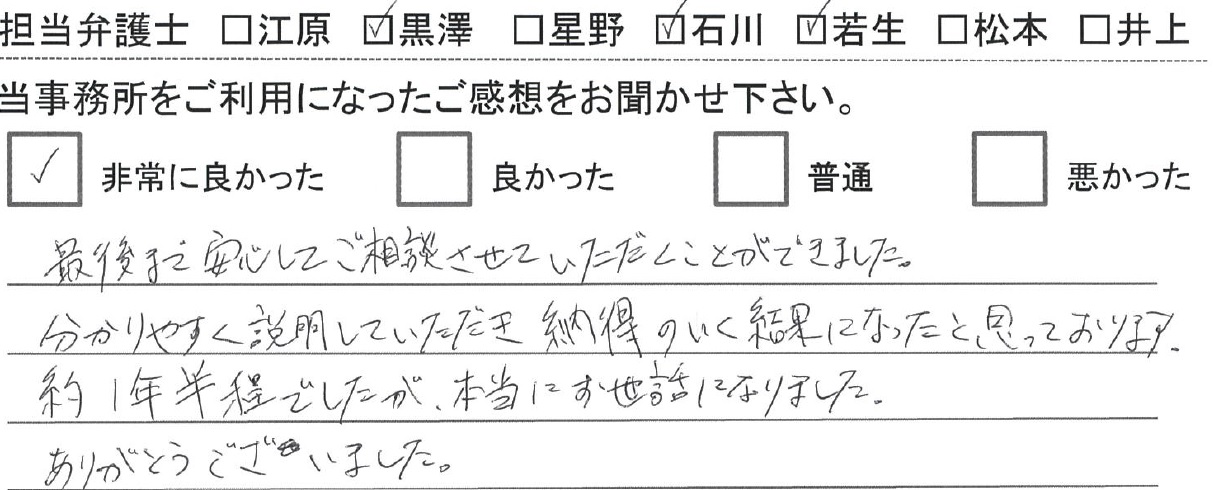 担当弁護士 □江原 ☑黒澤 □星野 ☑石川 ☑若生 □松本 □井上
当事務所をご利用になったご感想をお聞かせ下さい。
☑ 非常に良かった □ 良かった □ 普通 □ 悪かった
最後まで安心してご相談させていただくことができました。
分かりやすく説明していただき納得のいく結果になったと思っております。
約1年半程でしたが、本当にお世話になりました。
ありがとうございました。